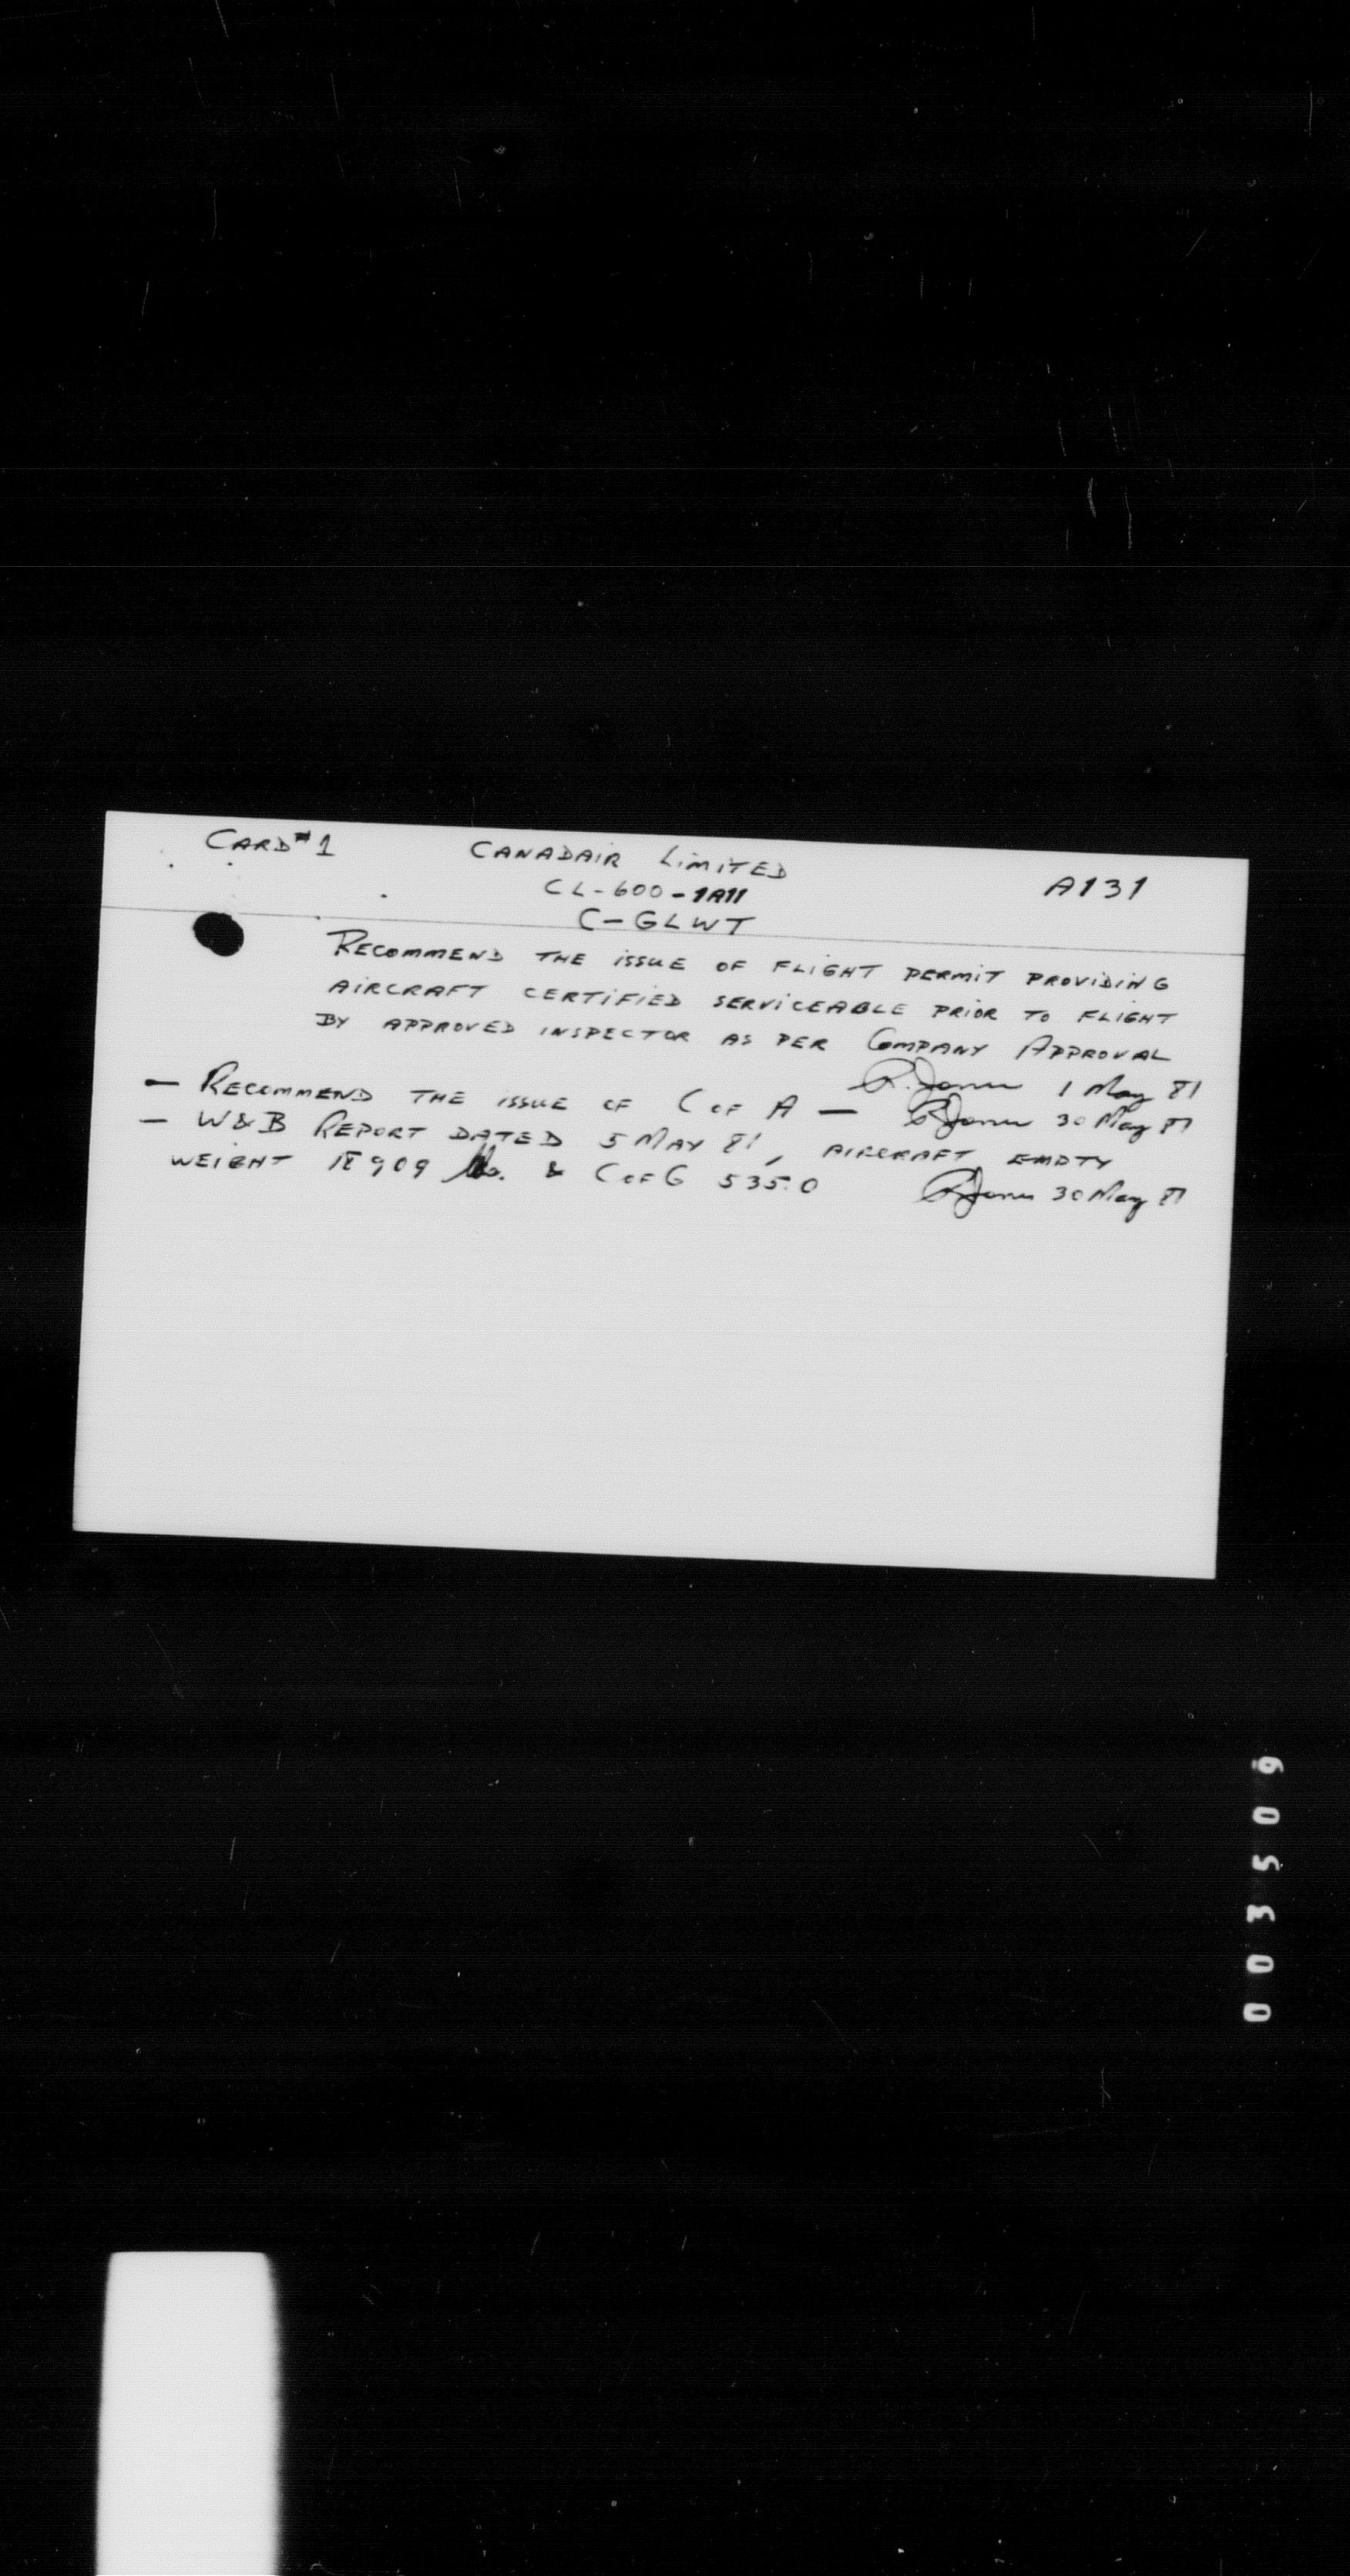 CARD #1 CANADAIR LIMITED
CL-600-1A11 A131
C-GLWT
RECOMMEND THE ISSUE OF FLIGHT PERMIT PROVIDING
AIRCRAFT CERTIFIED SERVICEABLE PRIOR TO FLIGHT
BY APPROVED INSPECTOR AS PER COMPANY APPROVAL
1 May 81
— RECOMMEND THE ISSUE OF C OF A — 30 May 81
— W&B REPORT DATED 5 MAY 81, AIRCRAFT EMPTY
WEIGHT 18909 lbs. & C OF G 535.0 30 May 81
003509